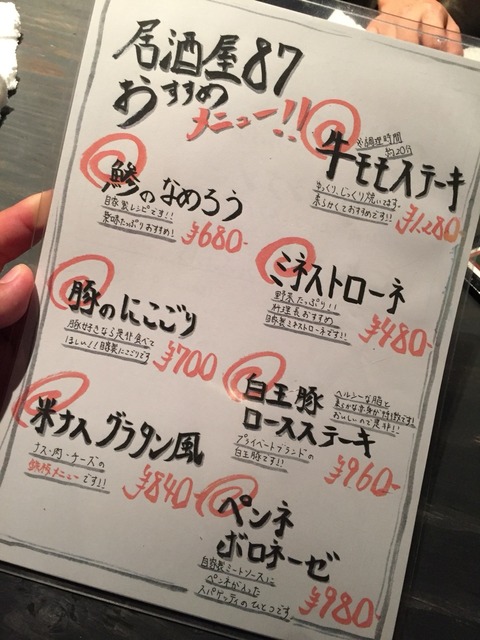 居酒屋87
おすすめ
メニュー!!
牛モモステーキ
※調理時間
約20分
じっくり焼いてます
柔らかくておすすめです!!
¥1,280-
鯵のなめろう
自家製レシピです!!
薬味たっぷりおすすめ!
¥680-
ミネストローネ
野菜たっぷり!!
料理長おすすめ
自家製ミネストローネです!!
¥480-
豚のにこごり
豚好きなら是非食べて
ほしい!!自家製にこごりです
¥700
白王豚
ロースステーキ
ヘルシーな脂と
柔らかな赤身が特徴です!
おいしいので是非!!
プライベートブランドの
白王豚です!!
¥960-
米ナスグラタン風
ナス・肉・チーズの
鉄板メニューです!!
¥840-
ペンネ
ボロネーゼ
自家製ミートソースに
ペンネが入った
スパゲッティのひとつです
¥980-